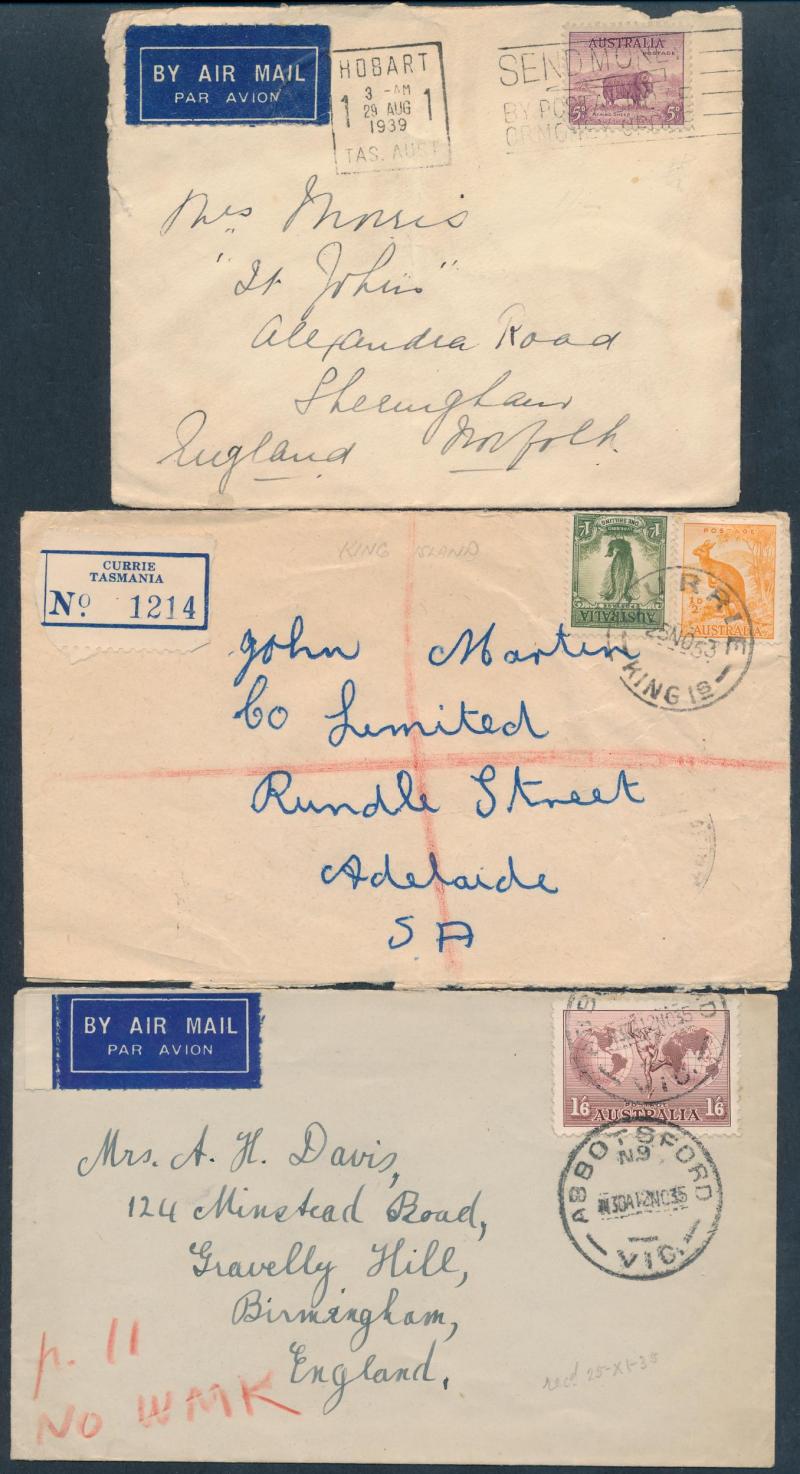 BY AIR MAIL
PAR AVION
HOBART
3 - AM
1 29 AUG 1
1939
TAS. AUST
SEND MONEY
BY POSTAL NOTE
OR MONEY ORDER
AUSTRALIA
POSTAGE
5D 5D
Mrs Morris
"St Johns"
Alexandra Road
Sheringham
England Norfolk.
CURRIE
TASMANIA
No. 1214
KING ISLAND
1/- 1/-
ONE SHILLING
POSTAGE
AUSTRALIA
POSTAGE
½D
AUSTRALIA
CURRIE
25NO53
KING IS
John Martin
Co Limited
Rundle Street
Adelaide
S A
BY AIR MAIL
PAR AVION
12NO35
VIC.
1/6 POSTAGE 1/6
AUSTRALIA
ABBOTSFORD
N.9
12NO35
VIC.
Mrs. A. H. Davis,
124 Minstead Road,
Gravelly Hill,
Birmingham,
England.
p. 11
NO WMK
recd 25-XI-35